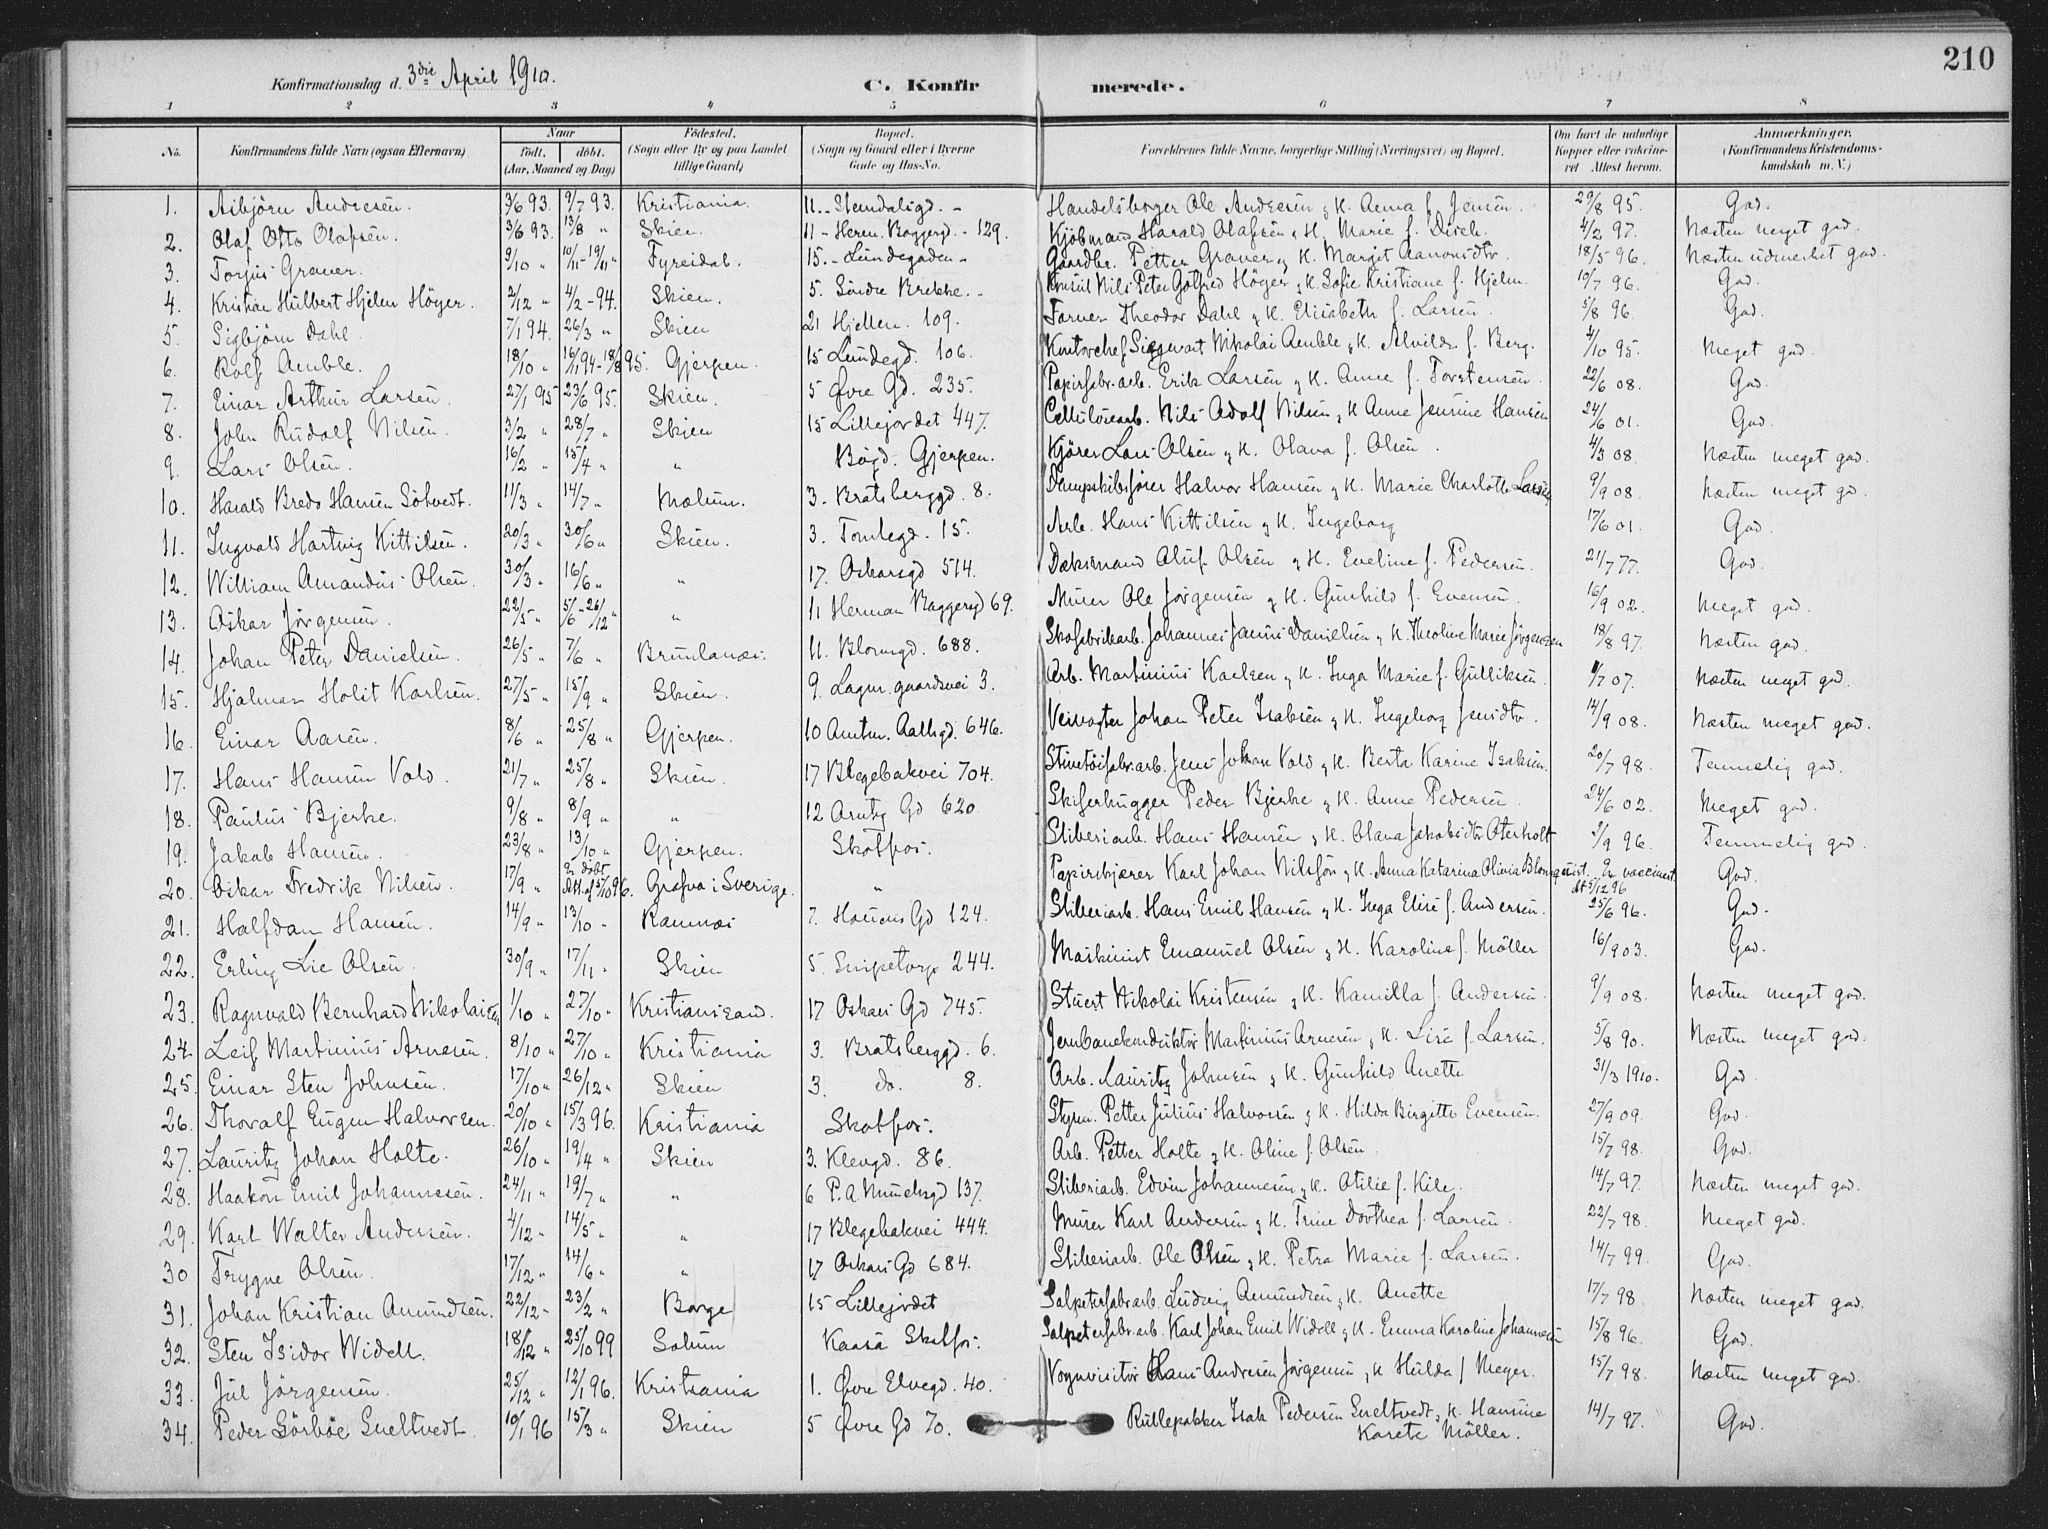 210
Konfirmationsdag d. 3die April 1910.
C. Konfirmerede.
1 2 3 4 5 6 7 8
No. Konfirmandens fulde Navn (ogsaa Efternavn) Naar født. døbt. (Aar, Maaned og Dag) Fødested. (Sogn eller By og paa Landet tillige Gaard) Bopæl. (Sogn og Gaard eller i Byerne Gade og Hus-No. Forældrenes fulde Navne, borgerlige Stilling (Næringsvei) og Bopæl. Om havt de naturlige Kopper eller vaccineret Attest herom. Anmærkninger. (Konfirmandens Kristendomskundskab m. V.)
1. Asbjörn Andresen. 3/6 93. 9/7 93. Kristiania. 11 - Stendalsgd. - Ole Andresen og H. Anna f. Jensen. 29/8 95. God.
2. Olaf Otto Olafsen. 3/6 93. 13/8 " Skien. 11 - Herm. Baggergd. - 129. Kjöbmand Harald Olafsen og H. Marie f. 4/2 97. Næsten meget god.
3. Torjus Graver. 9/10 " 10/11 - 19/11 " Fyresdal. 15. - Lundegaden - Gaardbr. Petter Graver og H. Margit Aanonsdtr. 18/5 96. Næsten udmerket god.
4. Kristian Hulbert Hjelm Höyer. 2/12 " 4/2 - 94. Skien. 5. Söndre Brekke. - Konsul Nils Peter Gotfred Höyer og H. Sofie Kristiane f. Hjelm. 10/7 96. God.
5. Sigbjörn Dahl. 7/1 94. 26/3 " Skien 21 Hjellen. 109. Farver Theodor Dahl og H. Elisabeth f. Larsen. 5/8 96. God.
6. Rolf Amble. 18/10 " 16/11 94 - 18/8 95. Gjerpen. 15 Lundegd. 106. Kontorchef Siggvart Nikolai Amble og H. Alvilde f. Berg. 4/10 95. Meget god.
7. Einar Arthur Larsen. 27/1 95 23/6 95. Skien. 5 Øvre Gd. 235. Papirfabr.arb. Erik Larsen og H. Anne f. Torstensen. 22/6 08. God.
8. John Rudolf Nilsen. 3/2 " 28/7 " Skien 15 Lillejordet 447. Cellulosearb. Nils Adolf Nilsen og H Anne Jensine Hansen 24/6 01. God.
9. Lars Olsen. 16/2 " 15/4 " " Bögd. Gjerpen. Kjörer Lars Olsen og H. Olava f. Olsen. 4/3 08. Næsten meget god.
10. Harald Bredo Hansen Sötvedt. 11/3 " 14/7 " Molum. 3. Bratsberggd. 8. Dampskibsförer Halvor Hansen og H. Marie Charlotte Larsen 9/9 08. Næsten meget gd.
11. Ingvald Hartvig Kittilsen. 20/3 " 30/6 " Skien. 3. Tomtegd. 15. Arb. Hans Kittilsen og H. Ingeborg 17/6 01. God.
12. William Amandus Olsen. 30/3 " 16/6 " " 17. Oskarsgd 514. Dæksmand Oluf Olsen og H. Eveline f. Pedersen. 21/7 77. God.
13. Oskar Jörgensen. 22/5 " 5/6 - 26/12 " " 11 Herman Baggersgd 69. Murer Ole Jörgensen og H. Gunhild f. Evensen. 16/9 02. Meget god.
14. Johan Peter Danielsen. 26/5 " 7/6 " Brunlanæs. 11. Blomsgd. 688. Skofabrikarb. Johannes Janus Danielsen og H. Theoline Marie Jörgensen 18/8 97. Næsten god.
15. Hjalmar Holst Karlsen. 27/5 " 15/9 " Skien. 9. Lagm.gaardsvei 3. Arb. Martinius Karlsen og H. Inga Marie f. Gulliksen. 1/7 07. Næsten meget god.
16. Einar Aasen. 8/6 " 25/8 " Gjerpen. 10 Amtm. Aallsgd. 646. Veivogter Johan Peter Isaksen og H. Ingeborg Jensdtr. 14/9 08. Næsten meget god.
17. Hans Hansen Vold. 21/7 " 25/8 " Skien. 17 Blegebakvei 704. Stentöisfabr.arb. Jens Johan Vold og H. Berta Karine Isaksen. 20/7 98. Temmelig god.
18. Paulus Bjerke. 9/8 " 8/9 " " 12 Arntz Gd 620. Skiferhugger Peder Bjerke og H. Anne Pedersen. 24/6 02. Meget god.
19. Jakob Hansen. 23/8 " 13/10 " Gjerpen. Skotfos. Sliberiarb. Hans Hansen og H. Olava Jakobsdtr Oterholt 3/9 96. Temmelig god.
20. Oskar Fredrik Nilsen. 17/9 " Er döbt Att. af 5/10 96. Grafva i Sverige. " Papirskjærer Karl Johan Nilssön og H. Anna Katarina Olivia Blomquist. Er vaccineret. Att 5/12 96 God.
21. Halfdan Hansen. 14/9 " 13/10 " Ramnæs 7. Hauens Gd 124. Sliberiarb. Hans Emil Hansen og H. Inga Elise f. Andersen. 25/6 96. God.
22. Erling Lie Olsen. 30/9 " 17/11 " Skien 5. Snipetorp 244. Maskinist Emanuel Olsen og H. Karoline f. Möller 16/9 03. God.
23. Ragnvald Bernhard Nikolaisen 1/10 " 27/10 " Kristianssand. 17 Oskars Gd 745. Stuert Nikolai Kristensen og H. Kamilla f. Andersen. 9/9 08. Næsten meget god.
24. Leif Martinius Arnesen. 8/10 " 27/10 " Kristiania 3. Bratsberggd. 6. Jernbanekonduktör Martinius Arnesen og H. Lise f. Larsen. 5/8 90. Næsten meget god.
25. Einar Sten Johnsen. 17/10 " 26/12 " Skien 3. do. 8. Arb. Lauritz Johnsen og H. Gunhild Anette 31/3 1910. God
26. Thoralf Eugen Halvorsen. 20/10 " 15/3 96. Kristiania Skotfos. Styrm. Petter Julius Halvorsen og H. Hilda Birgitte Evensen. 27/9 09. God.
27. Lauritz Johan Holte. 26/10 " 19/4 " Skien 3. Klevgd. 86. Arb. Petter Holte og H. Oline f. Olsen. 15/7 98. God.
28. Haakon Emil Johannesen. 24/11 " 19/7 " " 6 P. A. Munchsgd 137. Sliberiarb. Edvin Johannesen og H. Otilie f. Kile. 14/7 97. Næsten meget god.
29. Karl Walter Andersen. 4/12 " 14/5 " " 17 Blegebakvei 444. Murer Karl Andersen og H. Trine Dorthea f. Larsen. 22/7 98. Meget god.
30 Trygve Olsen. 17/12 " 14/6 " " 17 Oskars Gd 684. Sliberiarb. Ole Olsen og H. Petra Marie f. Larsen. 14/7 99. God.
31. Johan Kristian Amundsen. 22/12 - 23/2 " Borge 15 Lillejordet Salpeterfabr.arb. Ludvig Amundsen og H. Anette 17/7 98. Næsten meget god.
32. Sten Isidor Widell. 18/12 " 25/10 99 Solum Kaasa Skotfos. Salpeterfabr.arb. Karl Johan Emil Widell og H. Emma Karoline Johannesen 15/8 96. God.
33. Jul Jörgensen. 25/12 " 12/1 96. Kristiania 1. Øvre Elvegd. 40. Vognvisitör Hans Andresen Jörgensen og H Hulda f Meyer. 15/7 98. Næsten meget god.
34. Peder Görböe Sneltvedt. 10/1 96 15/3 " Skien 5 Øvre Gd 70. Rullepakker Isak Pedersen Sneltvedt og H. Hansine Karete Möller. 14/7 97. God.